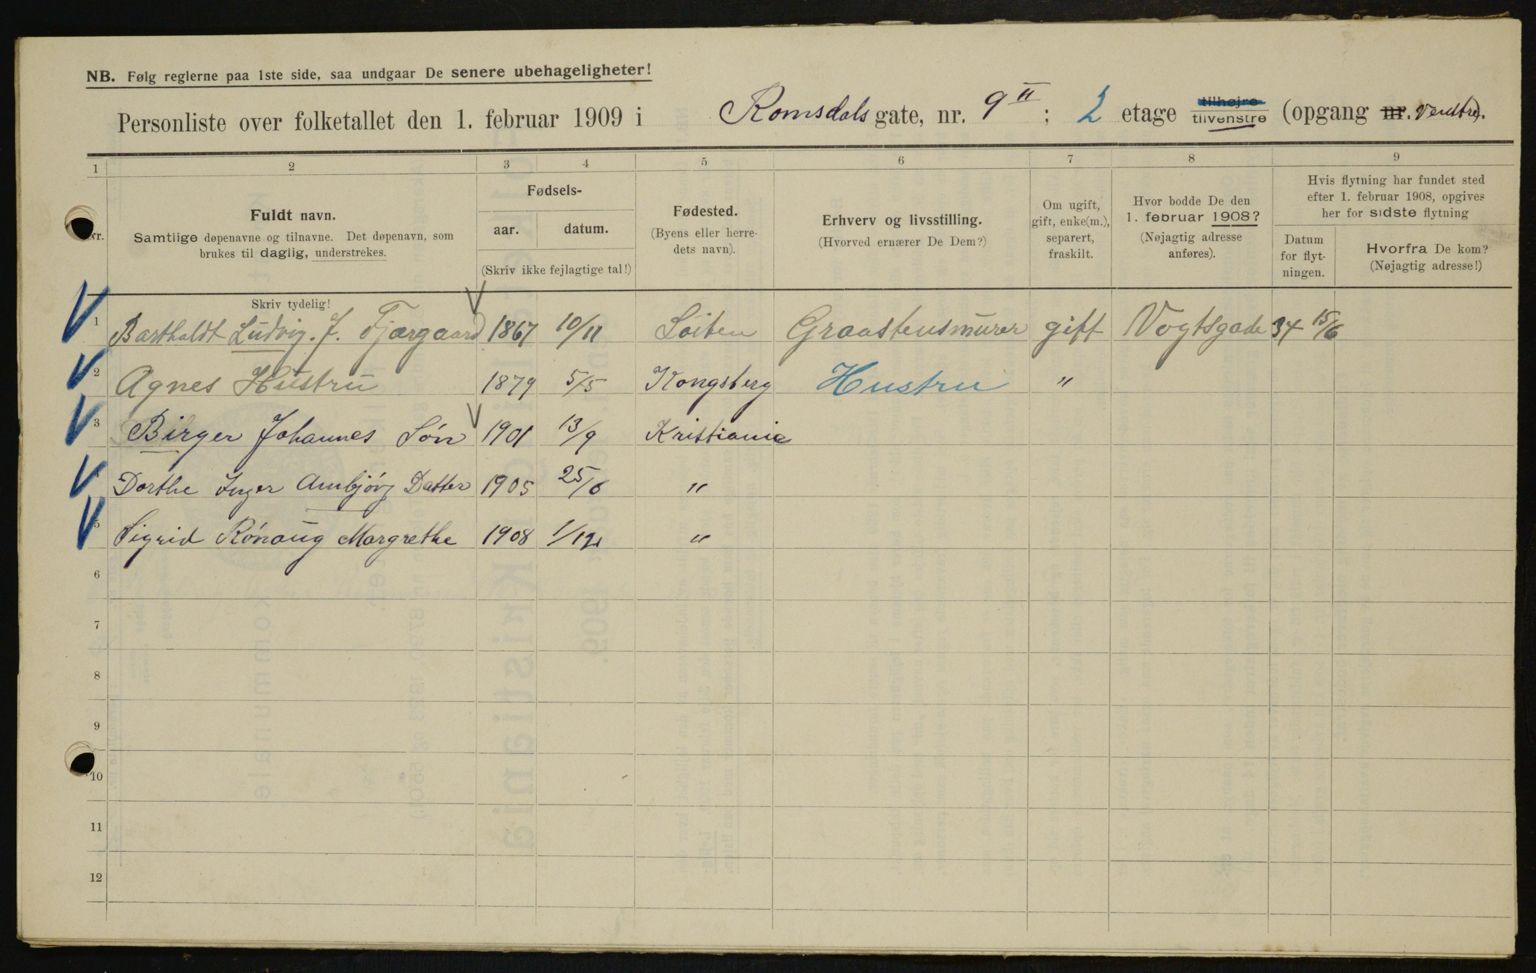 NB. Følg reglerne paa 1ste side, saa undgaar De senere ubehageligheter!
Personliste over folketallet den 1. februar 1909 i Romsdals gate, nr. 9 II ; 2 etage tilhøjre tilvenstre (opgang nr. Venstre).
1 2 3 4 5 6 7 8 9
Nr.
Fuldt navn.
Samtlige døpenavne og tilnavne. Det døpenavn, som
brukes til daglig, understrekes.
Fødsels-
aar. datum.
(Skriv ikke fejlagtige tal!)
Fødested.
(Byens eller herre-
dets navn).
Erhverv og livsstilling.
(Hvorved ernærer De Dem?)
Om ugift,
gift, enke(m.),
separert,
fraskilt.
Hvor bodde De den
1. februar 1908?
(Nøjagtig adresse
anføres).
Hvis flytning har fundet sted
efter 1. februar 1908, opgives
her for sidste flytning
Datum
for flyt-
ningen.
Hvorfra De kom?
(Nøjagtig adresse!)
Skriv tydelig!
1 Bartholdt Ludvig. J. Fjærgaard 1867 10/11 Løiten Graastensmurer gift Vogtsgade 34 15/6
2 Agnes Hustru 1879 5/5 Kongsberg Hustru "
3 Birger Johannes Søn 1901 13/9 Kristiania
Dorthe Inger Annbjørg Datter 1905 25/6 "
5 Sigrid Rónaug Margrethe 1908 1/12 "
6
7
8
9
10
11
12